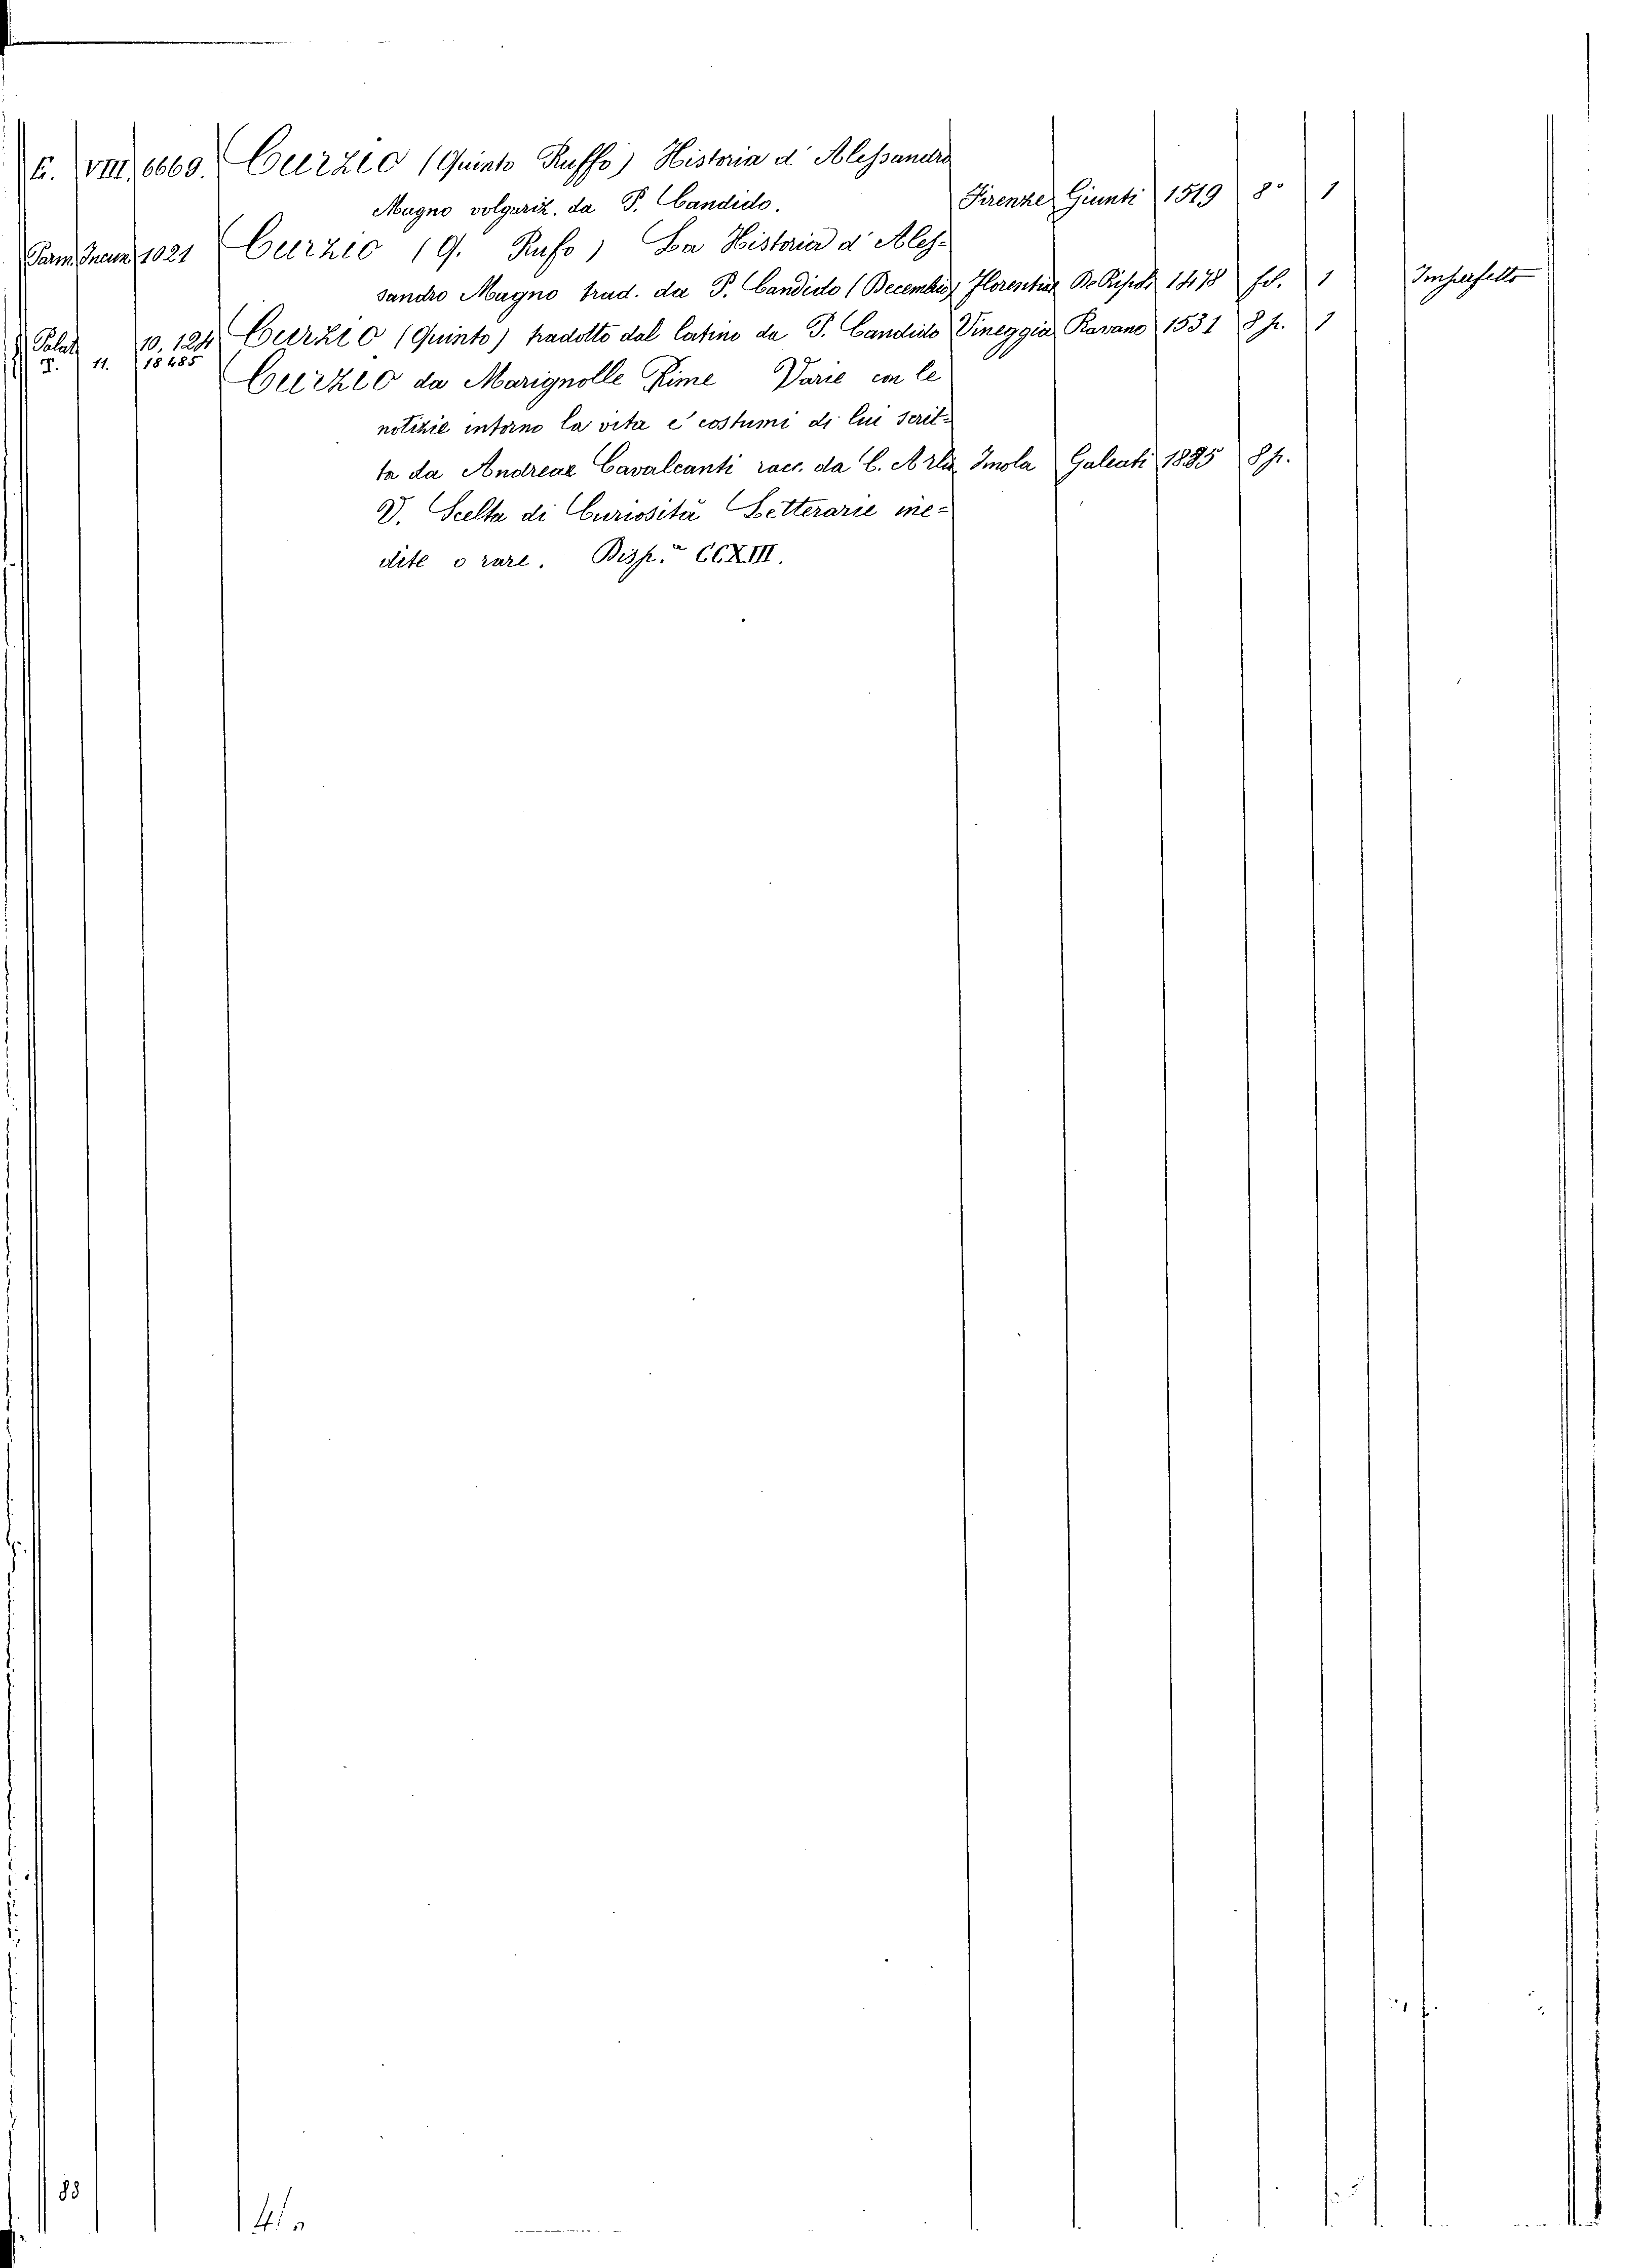 E. VIII. 6669. Curzio (Quinto Ruffo) Historia d'Alessandro
Magno volgariz. da P. Candido. Firenze Giunti 1519 8° 1
Pam. Incun. 1021 Curzio (Q. Rufo) La Historia d'Ales-
sandro Magno trad. da P. Candido (Decembrio) Florentiae De Ripoli 1478 fol. 1 Imperfetto
Palat. 10.124 Curzio (Quinto) tradotto dal latino da P. Candido Vineggia Ravano 1531 8 p. 1
F. 11. 18485 Curzio da Marignolle Rime Varie con le
notizie intorno la vita e costumi di lui scrit-
ta da Andrea Cavalcanti racc. da C. Arlia Imola Galeati 1885 8 p.
V. Scelta di Curiosità Letterarie ine-
dite o rare. Disp.ª CCXIII.
83
41.